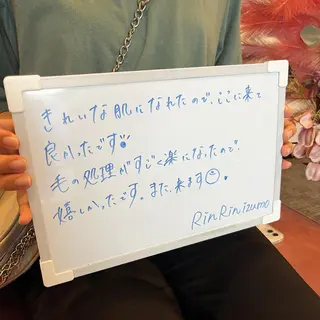 きれいな肌になれたので、ここに来て
良かったです!
毛の処理がすごく楽になったので、
嬉しかったです。また、来ます☺!
RinRinizumo